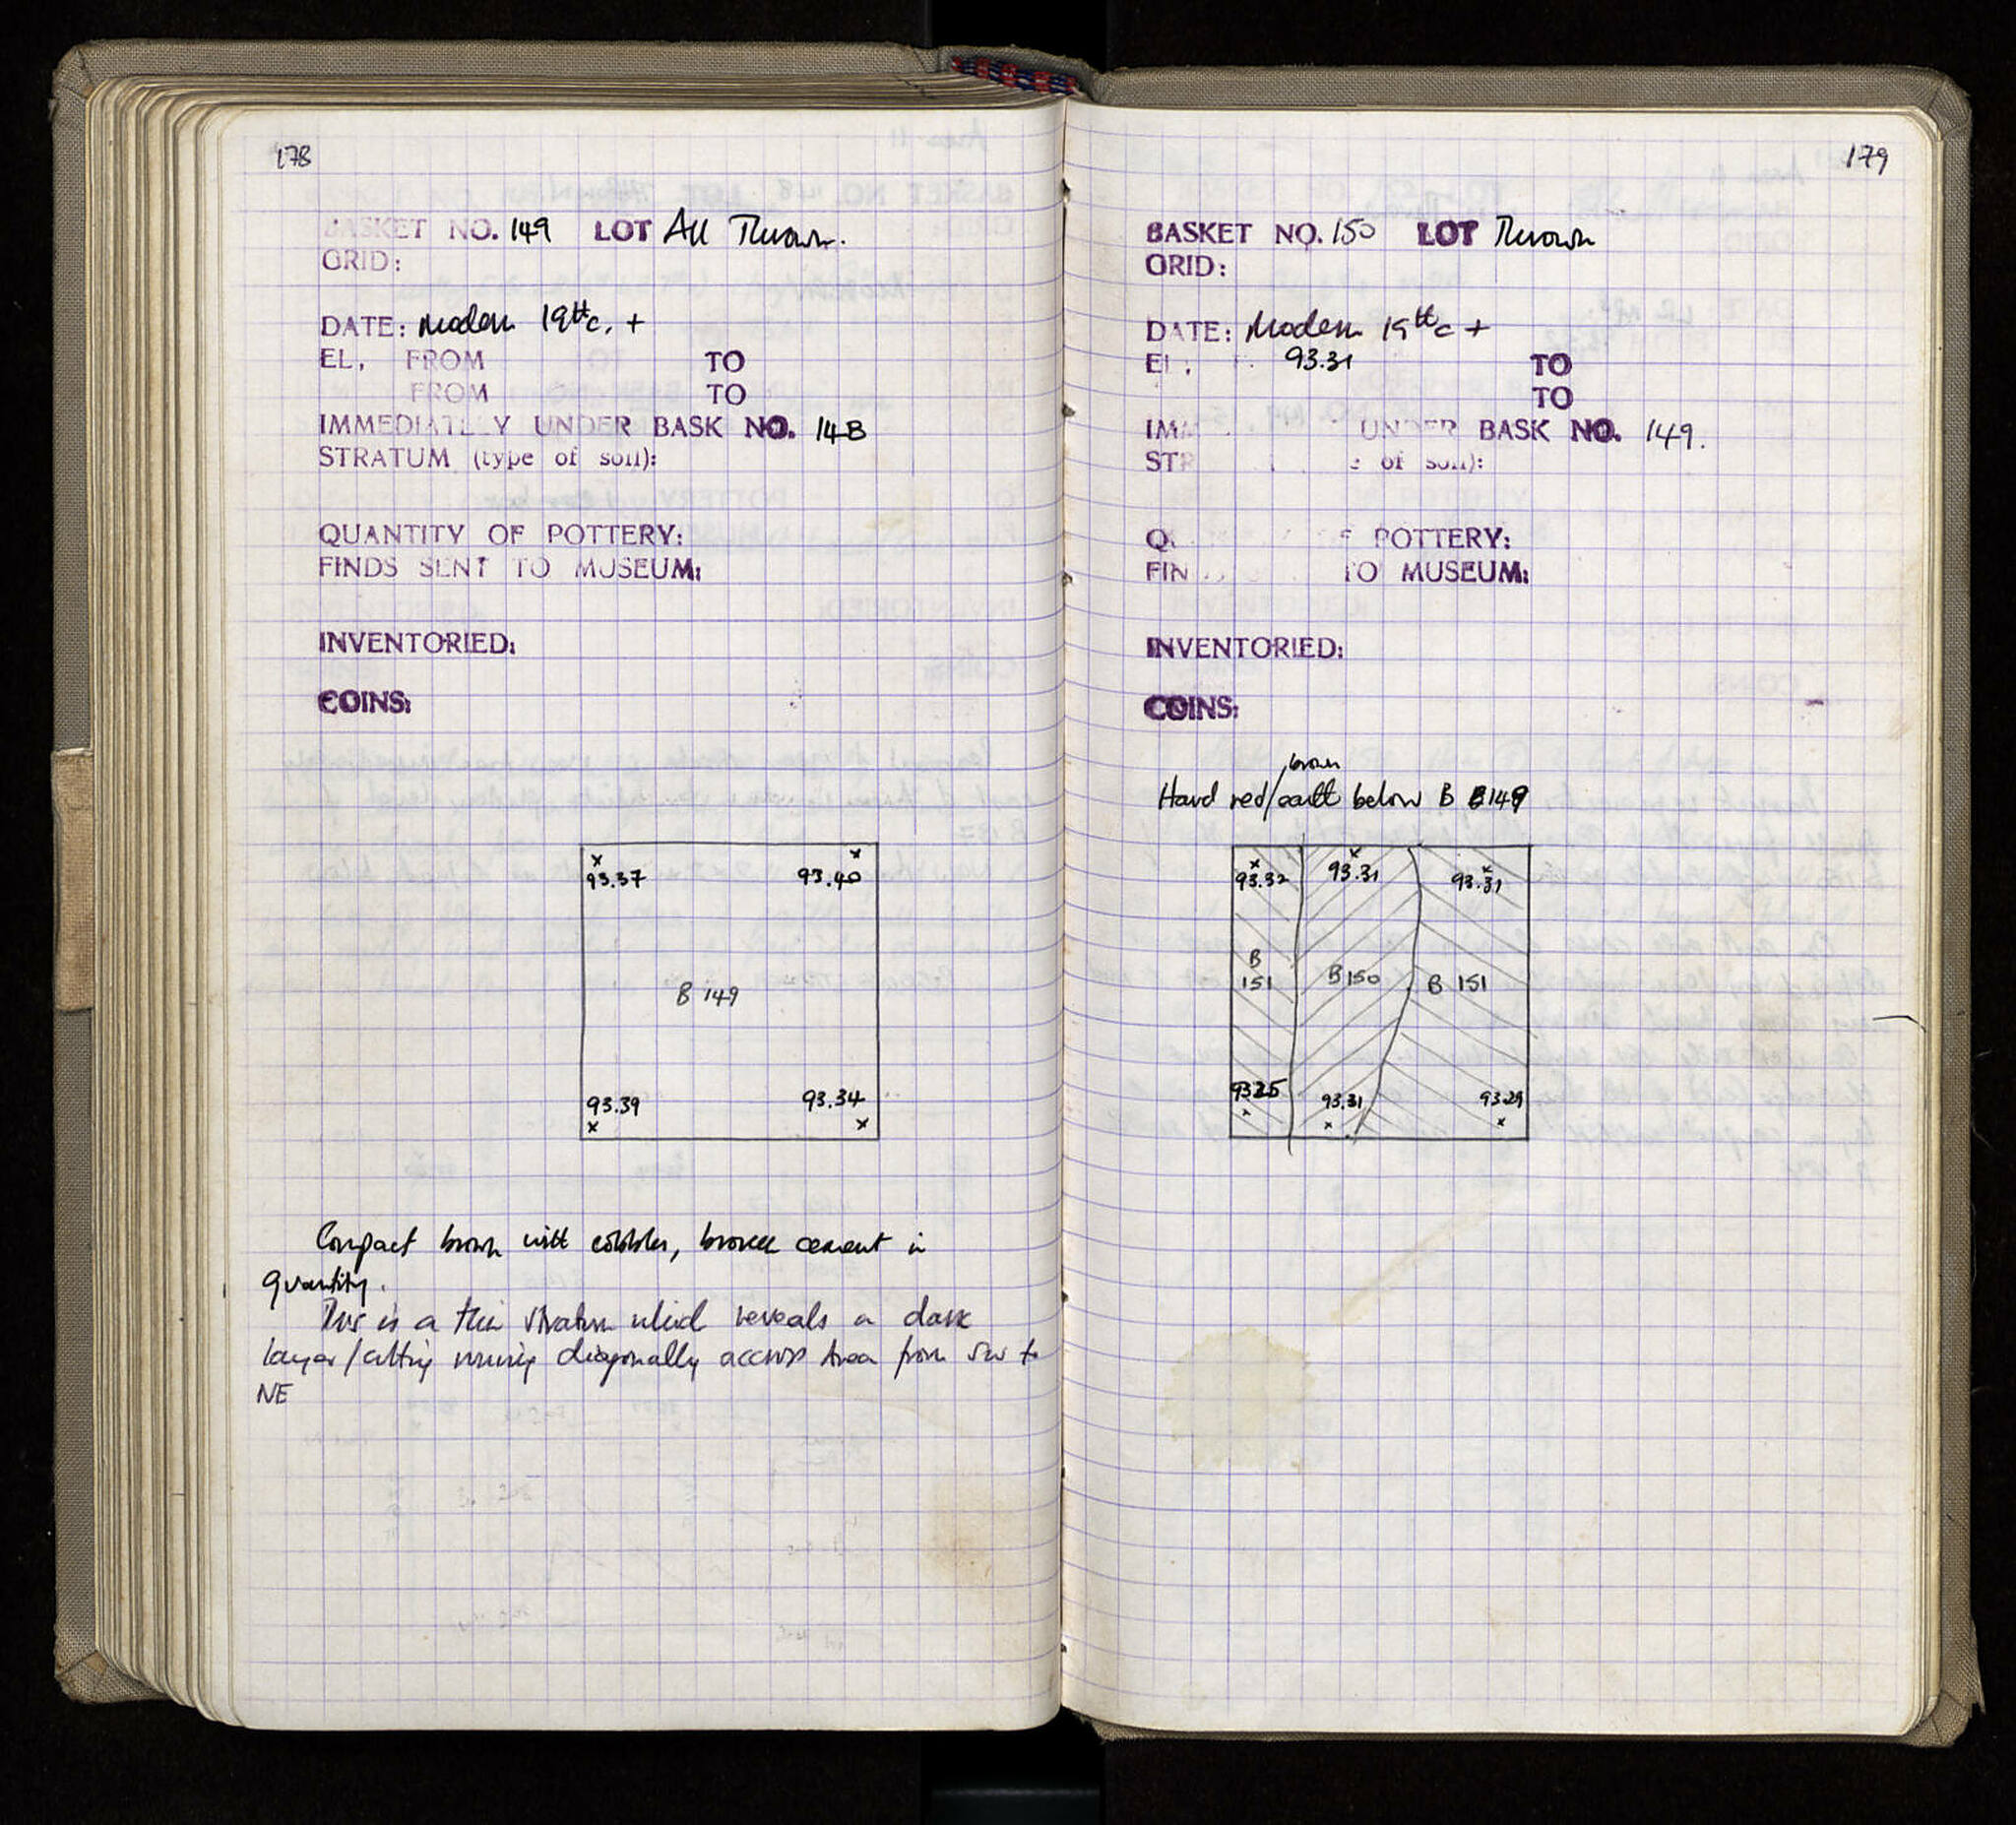 178
BASKET NO. 149 LOT All Thrown.
GRID:
DATE: Modern 19th c. +
EL, FROM TO
FROM TO
IMMEDIATELY UNDER BASK NO. 148
STRATUM (type of soil):
QUANTITY OF POTTERY:
FINDS SENT TO MUSEUM:
INVENTORIED:
COINS:
93.37 93.40
B 149
93.39 93.34
Compact brown with cobbles, broken cement in
quantity.
This is a thin stratum which reveals a dark
layer/cutting running diagonally accross Area from SW to
NE
179
BASKET NO. 150 LOT Thrown
GRID:
DATE: Modern 19th c +
EL, 93.31 TO
TO
IMM UNDER BASK NO. 149.
STR e of soil):
Q F POTTERY:
FIN TO MUSEUM:
INVENTORIED:
COINS:
brown
Hard red/earth below B 149
93.32 93.31 93.31
B
151 B150 B 151
93.31 93.29